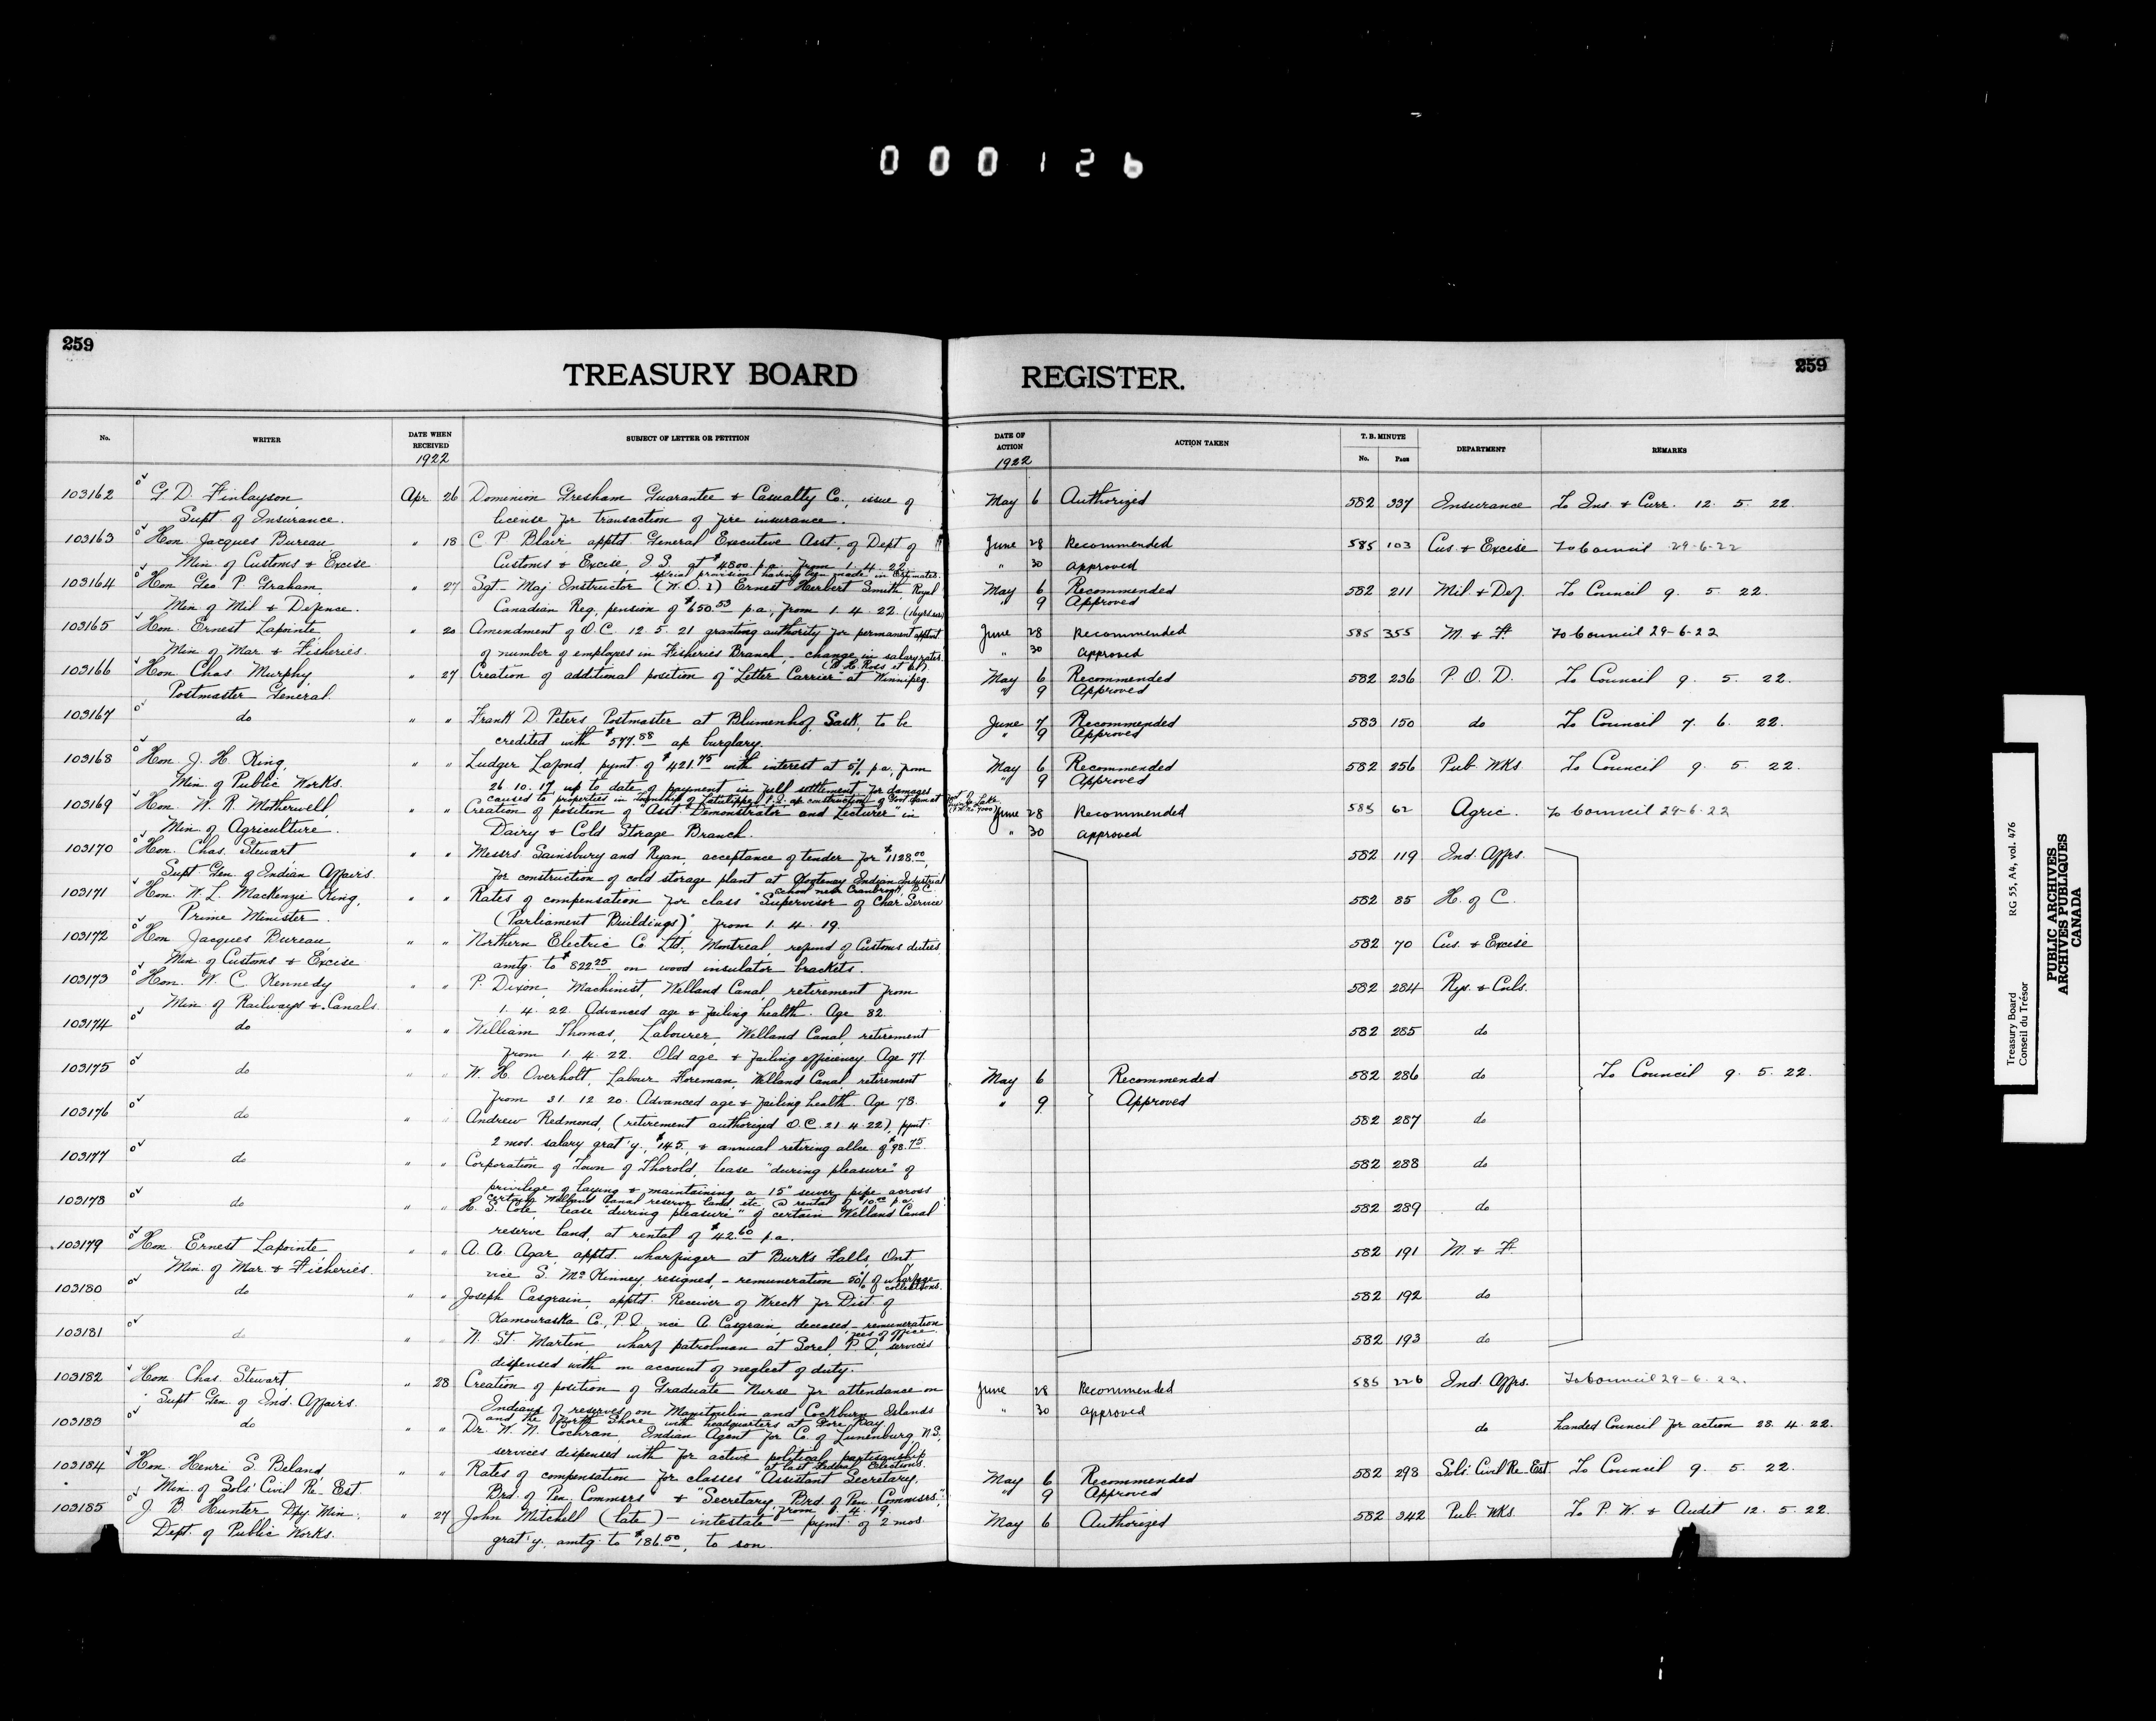 000126
259
TREASURY BOARD REGISTER.
259
No. WRITER DATE WHEN RECEIVED SUBJECT OF LETTER OR PETITION DATE OF ACTION ACTION TAKEN T. B. MINUTE No. Page DEPARTMENT REMARKS
1922 1922
103162 G D. Finlayson, Apr. 26 Dominion Gresham Guarantee & Casualty Co., issue of May 6 Authorized 582 337 Insurance To Ins. & Curr. 12. 5. 22.
Supt. of Insurance. license for transaction of fire insurance.
103163 Hon. Jacques Bureau " 18 C. P. Blair apptd. General Executive Asst. of Dept of June 28 Recommended 585 103 Cus. & Excise To Council 29-6-22
Min. of Customs & Excise Customs & Excise, I.S. at $4800 p.a. from 1. 4. 22 " 30 Approved
special provision having been made in Estimates.
103164 Hon. Geo. P. Graham, " 27 Sgt-Maj Instructor (W.O.1) Ernest Herbert Smith, Royal May 6 Recommended 582 211 Mil. & Def. To Council 9. 5. 22.
Min. of Mil & Defence. Canadian Reg, pension of $650.53 p.a., from 1. 4. 22. " 9 Approved
103165 Hon. Ernest Lapointe, " 20 Amendment of O.C. 12. 5. 21 granting authority for permanent apptmt June 28 Recommended 585 355 M. & F. To Council 29-6-22
Min. of Mar. & Fisheries. of number of employes in Fisheries Branch, - change in salary rates. " 30 Approved
(D. H. Ross et al).
103166 Hon. Chas Murphy, " 27 Creation of additional position of "Letter Carrier" at Winnipeg. May 6 Recommended 582 236 P. O. D. To Council 9. 5. 22.
Postmaster General. " 9 Approved
103167 do " " Frank D. Peters, Postmaster at Blumenhof, Sask, to be June 7 Recommended 583 150 do To Council 7. 6. 22.
credited with $577.88 a/c burglary. " 9 Approved
103168 Hon. J. H. King, " " Ludger Lafond, pymt of $421.75 with interest at 5% p.a., from May 6 Recommended 582 256 Pub. Wks. To Council 9. 5. 22.
Min. of Public Works. 26. 10. 17 up to date of payment in full settlement for damages " 9 Approved
caused to properties in Township of Latulippe, P.Q. a/c construction of Govt. dam at
103169 Hon. W. R. Motherwell, " " Creation of position of "Asst. Demonstrator and Lecturer" in June 28 Recommended 585 62 Agric. To Council 29-6-22
Min. of Agriculture. Dairy & Cold Storage Branch. " 30 Approved
103170 Hon. Chas. Stewart " " Messrs. Sainsbury and Ryan, acceptance of tender for $1128.00, 582 119 Ind. Affrs.
Supt. Gen. of Indian Affairs. for construction of cold storage plant at Kootenay Indian Industrial
School near Cranbrook, B.C.
103171 Hon. W. L. MacKenzie King, " " Rates of compensation for class "Supervisor of Char Service 582 85 H. of C.
Prime Minister. (Parliament Buildings)" from 1. 4. 19.
103172 Hon Jacques Bureau, " " Northern Electric Co. Ltd., Montreal, refund of Customs duties 582 70 Cus. & Excise
Min. of Customs & Excise amtg. to $822.25 on wood insulator brackets.
103173 Hon. W. C. Kennedy " " P. Dixon, Machinist, Welland Canal, retirement from 582 284 Rys. & Cnls.
Min. of Railways & Canals. 1. 4. 22. Advanced age & failing health. Age 82.
103174 do " " William Thomas, Labourer, Welland Canal, retirement 582 285 do
from 1. 4. 22. Old age & failing efficiency. Age 77.
103175 do " " W. H. Overholt, Labour Foreman, Welland Canal, retirement May 6 Recommended 582 286 do To Council 9. 5. 22.
from 31. 12. 20. Advanced age & failing health. Age 78. " 9 Approved
103176 do " " Andrew Redmond, (retirement authorized O.C. 21. 4. 22), pymt. 582 287 do
2 mos. salary grat'y. $145, & annual retiring allce. of $98.75.
103177 do " " Corporation of Town of Thorold, lease "during pleasure" of 582 288 do
privilege of laying & maintaining a 15" sewer pipe across
certain Welland Canal reserve land, etc. @ rental of $10.00 p.a.
103178 do " " H. S. Cole, lease "during pleasure" of certain Welland Canal 582 289 do
reserve land, at rental of $42.60 p.a.
103179 Hon. Ernest Lapointe, " " A. A. Agar, apptd. wharfinger at Burks Falls, Ont. 582 191 M. & F.
Min. of Mar. & Fisheries. vice S. McKinney, resigned, - remuneration 50% of wharfage
collections.
103180 do " " Joseph Casgrain, apptd. Receiver of Wreck for Dist. of 582 192 do
Kamouraska Co., P.Q., vice A. Casgrain, deceased - remuneration
fees of office.
103181 do " " N. St. Martin, wharf patrolman at Sorel, P.Q., services 582 193 do
dispensed with on account of neglect of duty.
103182 Hon. Chas. Stewart, " 28 Creation of position of Graduate Nurse for attendance on June 28 Recommended 585 226 Ind. Affrs. To Council 29-6-22.
Supt. Gen. of Ind. Affairs. Indians of reserves on Manitoulin and Cockburn Islands " 30 Approved
and the North Shore with headquarters at Gore Bay.
103183 do " " Dr. W. N. Cochran, Indian Agent for Co. of Lunenburg, N.S., do handed Council for action 28. 4. 22.
services dispensed with for active political partisanship
at last Federal Elections.
103184 Hon. Henri S. Beland " " Rates of compensation for classes "Assistant Secretary, May 6 Recommended 582 298 Sols' Civil Re-Est. To Council 9. 5. 22.
Min. of Sols' Civil Re-Est. Brd. of Pen. Commsrs & "Secretary, Brd. of Pen. Commsrs", " 9 Approved
from 1. 4. 19.
103185 J. B. Hunter Dpy Min., " 27 John Mitchell (late) - intestate - pymt. of 2 mos. May 6 Authorized 582 342 Pub. Wks. To P. W. & Audit 12. 5. 22.
Dept. of Public Works. grat'y. amtg. to $186.50, to son.
Treasury Board RG 55, A4, vol. 476
Conseil du Trésor
PUBLIC ARCHIVES
ARCHIVES PUBLIQUES
CANADA